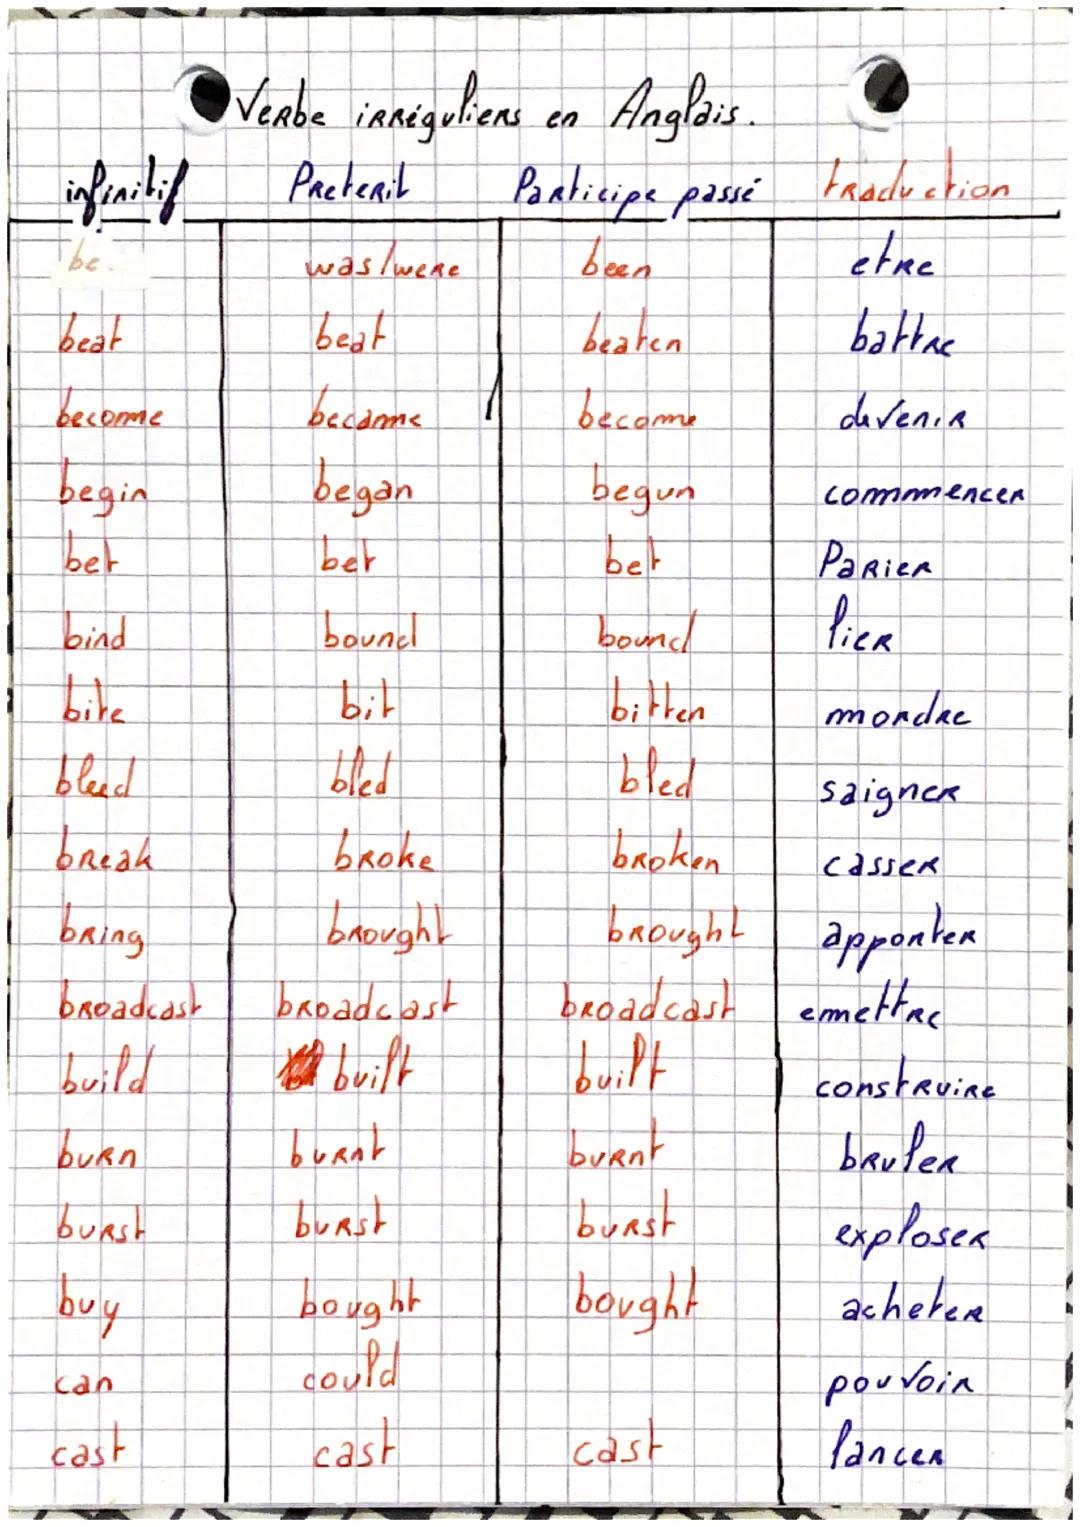 Verbe irréguliers en Anglais.
infinitif Preterit Participe passé traduction
be was/were been etre
beat beat beaten battre
become became become devenir
begin began begun commencer
bet bet bet Parier
bind bound bound lier
bite bit bitten mordre
bleed bled bled saigner
break broke broken casser
bring brought brought apporter
broadcast broadcast broadcast emettre
build built built construire
burn burnt burnt bruler
burst burst burst exploser
buy bought bought acheter
can could pouvoir
cast cast cast lancer